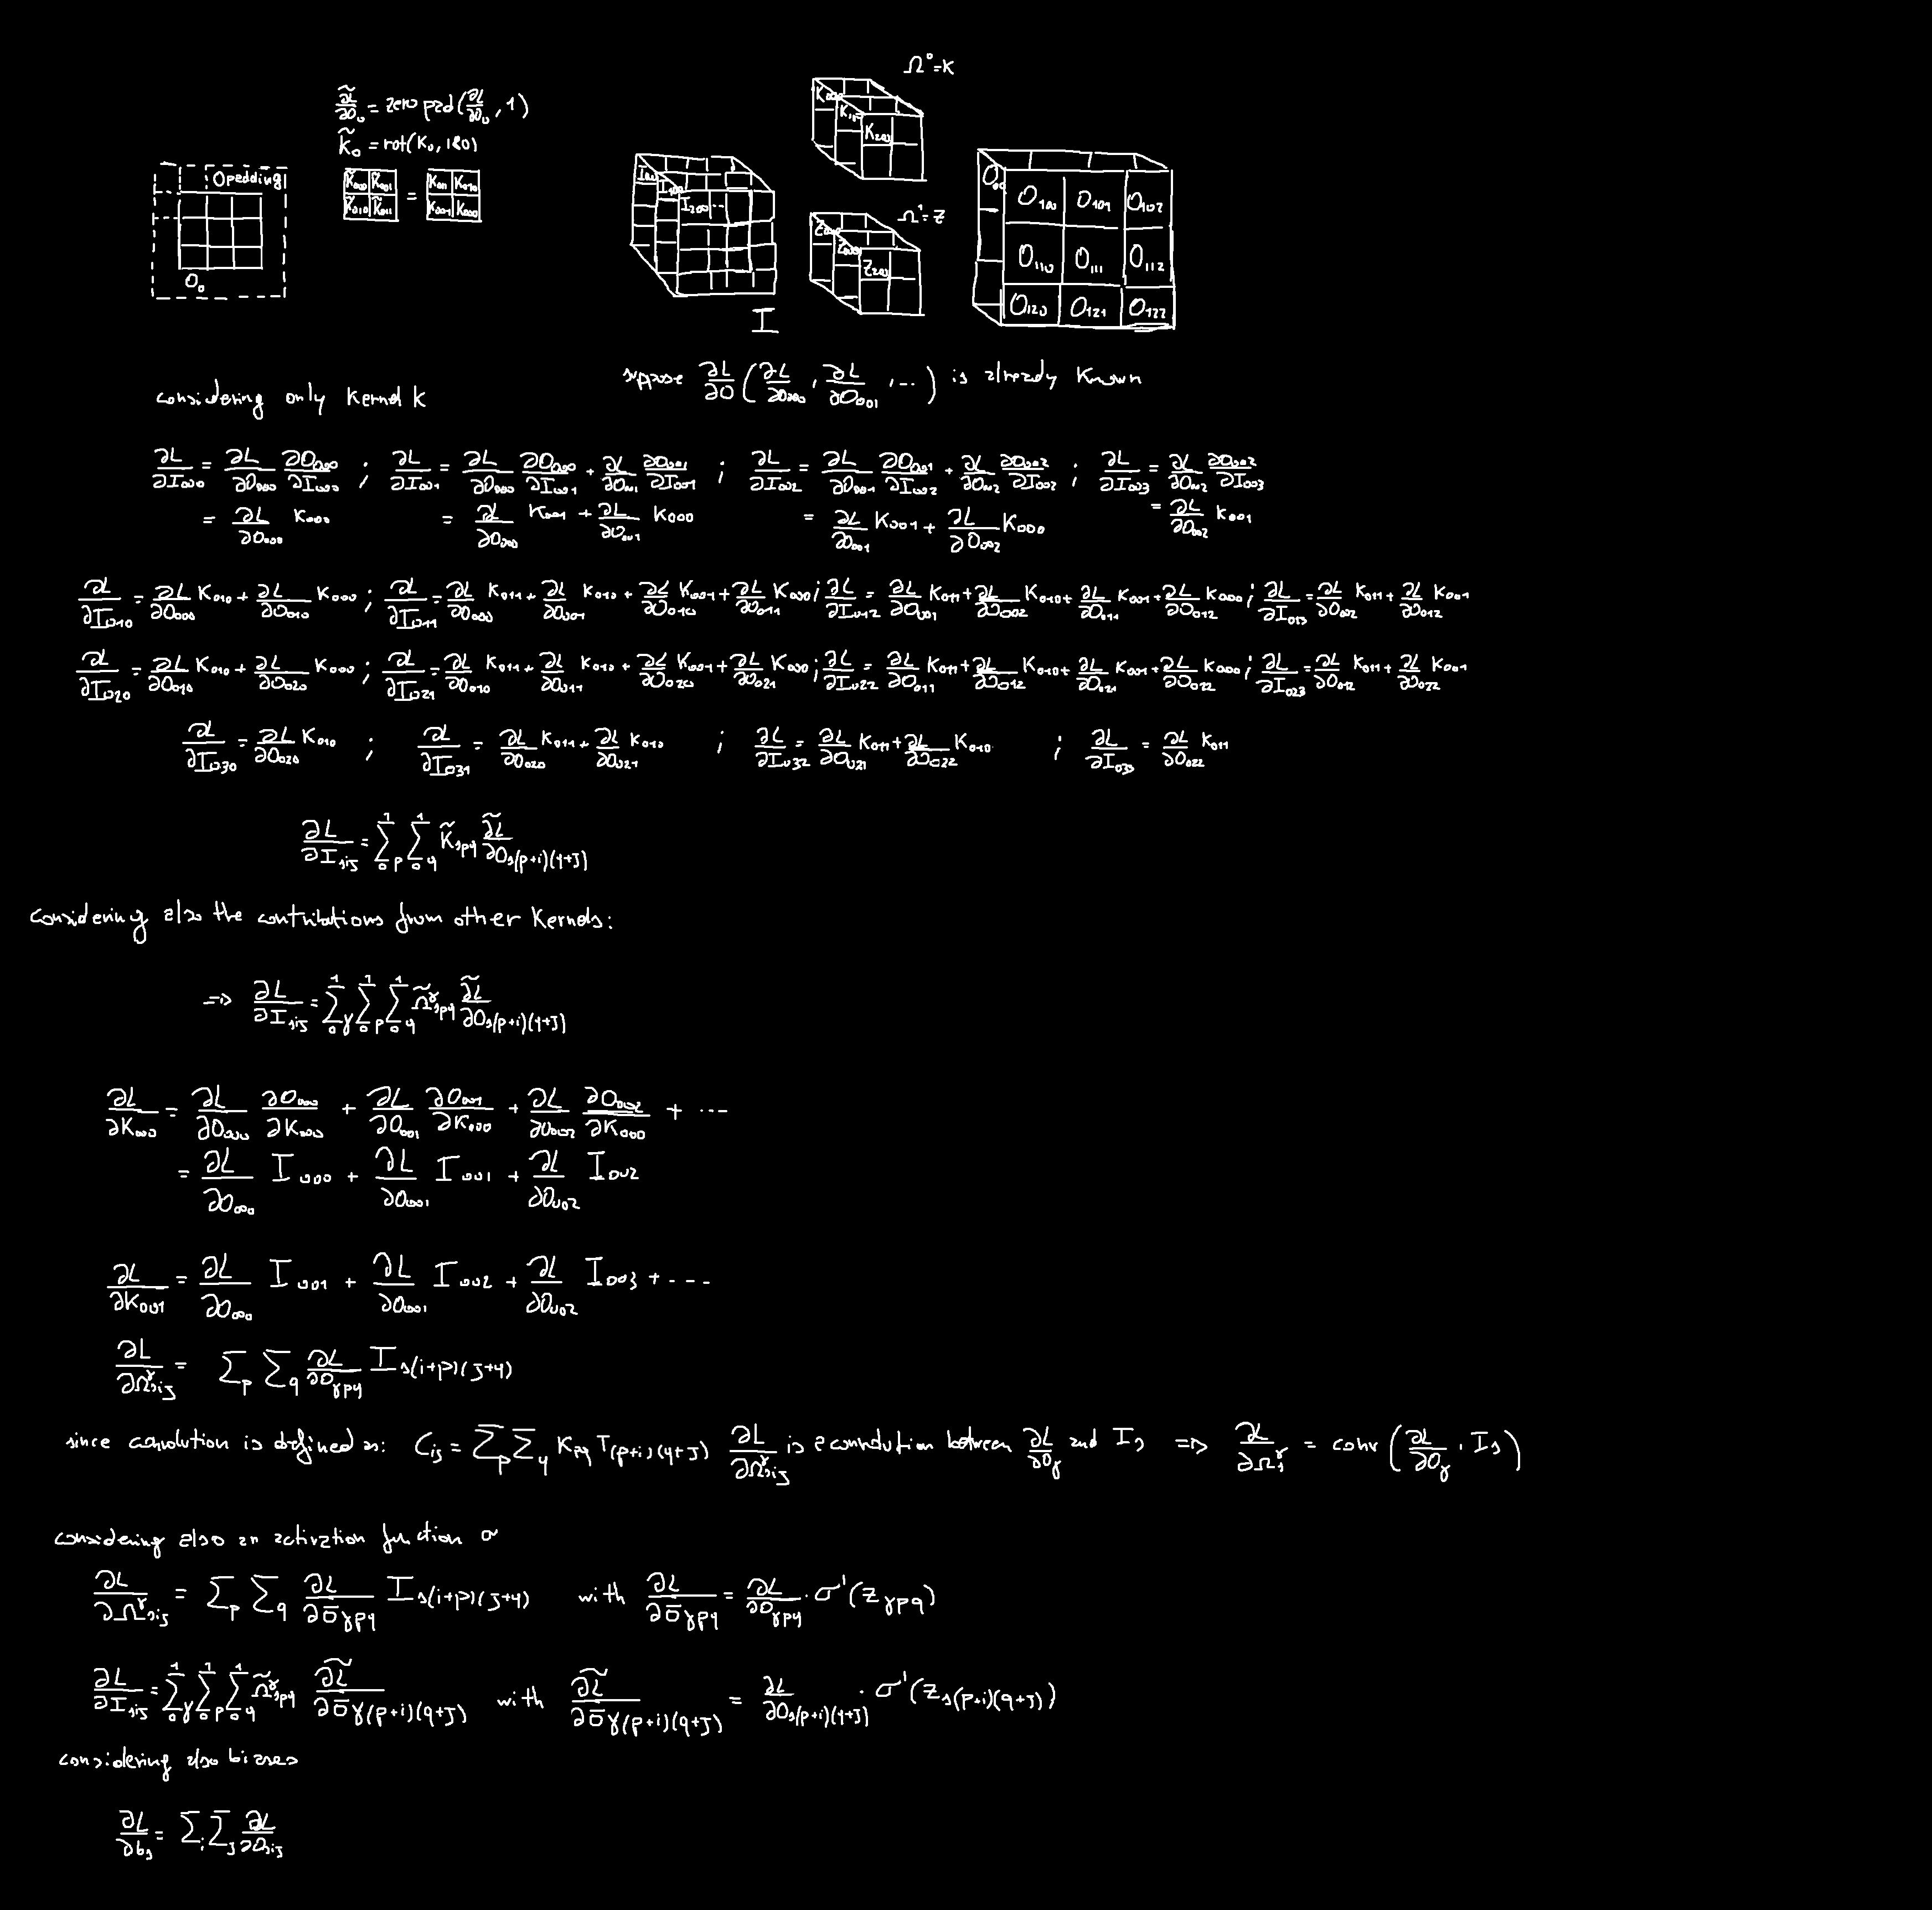 Ω⁰=K
∂̃L/∂O₀ = zero pad(∂L/∂O₀, 1)
K̃₀ = rot(K₀, 180)
0 padding
O₀
K̃₀₀₀ K̃₀₀₁ = K₀₁₁ K₀₁₀
K̃₀₁₀ K̃₀₁₁ K₀₀₁ K₀₀₀
K₀₀₀ K₁₀₀ K₂₀₀
I₀₀₀ I₁₀₀ I₂₀₀ ...
I
Ω¹=Z
Z₀₀₀ Z₂₀₀
O₁₀₀ O₁₀₁ O₁₀₂
O₁₁₀ O₁₁₁ O₁₁₂
O₁₂₀ O₁₂₁ O₁₂₂
suppose ∂L/∂O (∂L/∂O₀₀₀, ∂L/∂O₀₀₁, ...) is already known
considering only Kernel K
∂L/∂I₀₀₀ = ∂L/∂O₀₀₀ ∂O₀₀₀/∂I₀₀₀ ; ∂L/∂I₀₀₁ = ∂L/∂O₀₀₀ ∂O₀₀₀/∂I₀₀₁ + ∂L/∂O₀₀₁ ∂O₀₀₁/∂I₀₀₁ ; ∂L/∂I₀₀₂ = ∂L/∂O₀₀₁ ∂O₀₀₁/∂I₀₀₂ + ∂L/∂O₀₀₂ ∂O₀₀₂/∂I₀₀₂ ; ∂L/∂I₀₀₃ = ∂L/∂O₀₀₂ ∂O₀₀₂/∂I₀₀₃
= ∂L/∂O₀₀₀ K₀₀₀ = ∂L/∂O₀₀₀ K₀₀₁ + ∂L/∂O₀₀₁ K₀₀₀ = ∂L/∂O₀₀₁ K₀₀₁ + ∂L/∂O₀₀₂ K₀₀₀ = ∂L/∂O₀₀₂ K₀₀₁
∂L/∂I₀₁₀ = ∂L/∂O₀₀₀ K₀₁₀ + ∂L/∂O₀₁₀ K₀₀₀ ; ∂L/∂I₀₁₁ = ∂L/∂O₀₀₀ K₀₁₁ + ∂L/∂O₀₀₁ K₀₁₀ + ∂L/∂O₀₁₀ K₀₀₁ + ∂L/∂O₀₁₁ K₀₀₀ ; ∂L/∂I₀₁₂ = ∂L/∂O₀₀₁ K₀₁₁ + ∂L/∂O₀₀₂ K₀₁₀ + ∂L/∂O₀₁₁ K₀₀₁ + ∂L/∂O₀₁₂ K₀₀₀ ; ∂L/∂I₀₁₃ = ∂L/∂O₀₀₂ K₀₁₁ + ∂L/∂O₀₁₂ K₀₀₁
∂L/∂I₀₂₀ = ∂L/∂O₀₁₀ K₀₁₀ + ∂L/∂O₀₂₀ K₀₀₀ ; ∂L/∂I₀₂₁ = ∂L/∂O₀₁₀ K₀₁₁ + ∂L/∂O₀₁₁ K₀₁₀ + ∂L/∂O₀₂₀ K₀₀₁ + ∂L/∂O₀₂₁ K₀₀₀ ; ∂L/∂I₀₂₂ = ∂L/∂O₀₁₁ K₀₁₁ + ∂L/∂O₀₁₂ K₀₁₀ + ∂L/∂O₀₂₁ K₀₀₁ + ∂L/∂O₀₂₂ K₀₀₀ ; ∂L/∂I₀₂₃ = ∂L/∂O₀₁₂ K₀₁₁ + ∂L/∂O₀₂₂ K₀₀₁
∂L/∂I₀₃₀ = ∂L/∂O₀₂₀ K₀₁₀ ; ∂L/∂I₀₃₁ = ∂L/∂O₀₂₀ K₀₁₁ + ∂L/∂O₀₂₁ K₀₁₀ ; ∂L/∂I₀₃₂ = ∂L/∂O₀₂₁ K₀₁₁ + ∂L/∂O₀₂₂ K₀₁₀ ; ∂L/∂I₀₃₃ = ∂L/∂O₀₂₂ K₀₁₁
∂L/∂I_sij = Σ₀¹_p Σ₀¹_q K̃_spq ∂̃L/∂O_s(p+i)(q+j)
considering also the contributions from other Kernels:
=> ∂L/∂I_sij = Σ₀¹_γ Σ₀¹_p Σ₀¹_q Ω̃^γ_spq ∂̃L/∂O_s(p+i)(q+j)
∂L/∂K₀₀₀ = ∂L/∂O₀₀₀ ∂O₀₀₀/∂K₀₀₀ + ∂L/∂O₀₀₁ ∂O₀₀₁/∂K₀₀₀ + ∂L/∂O₀₀₂ ∂O₀₀₂/∂K₀₀₀ + ...
= ∂L/∂O₀₀₀ I₀₀₀ + ∂L/∂O₀₀₁ I₀₀₁ + ∂L/∂O₀₀₂ I₀₀₂
∂L/∂K₀₀₁ = ∂L/∂O₀₀₀ I₀₀₁ + ∂L/∂O₀₀₁ I₀₀₂ + ∂L/∂O₀₀₂ I₀₀₃ + ....
∂L/∂Ω^γ_sij = Σ_p Σ_q ∂L/∂O_γpq I_s(i+p)(j+q)
since convolution is defined as: C_ij = Σ_p Σ_q K_pq T_(p+i)(q+j) ∂L/∂Ω^γ_sij is a convolution between ∂L/∂O_γ and I_s => ∂L/∂Ω^γ_s = conv(∂L/∂O_γ, I_s)
considering also an activation function σ
∂L/∂Ω^γ_sij = Σ_p Σ_q ∂L/∂Ō_γpq I_s(i+p)(j+q) with ∂L/∂Ō_γpq = ∂L/∂O_γpq · σ'(z_γpq)
∂L/∂I_sij = Σ₀¹_γ Σ₀¹_p Σ₀¹_q Ω̃^γ_spq ∂̃L/∂Ō_γ(p+i)(q+j) with ∂̃L/∂Ō_γ(p+i)(q+j) = ∂L/∂O_s(p+i)(q+j) · σ'(z_s(p+i)(q+j))
considering also biases
∂L/∂b_s = Σ_i Σ_j ∂L/∂O_sij